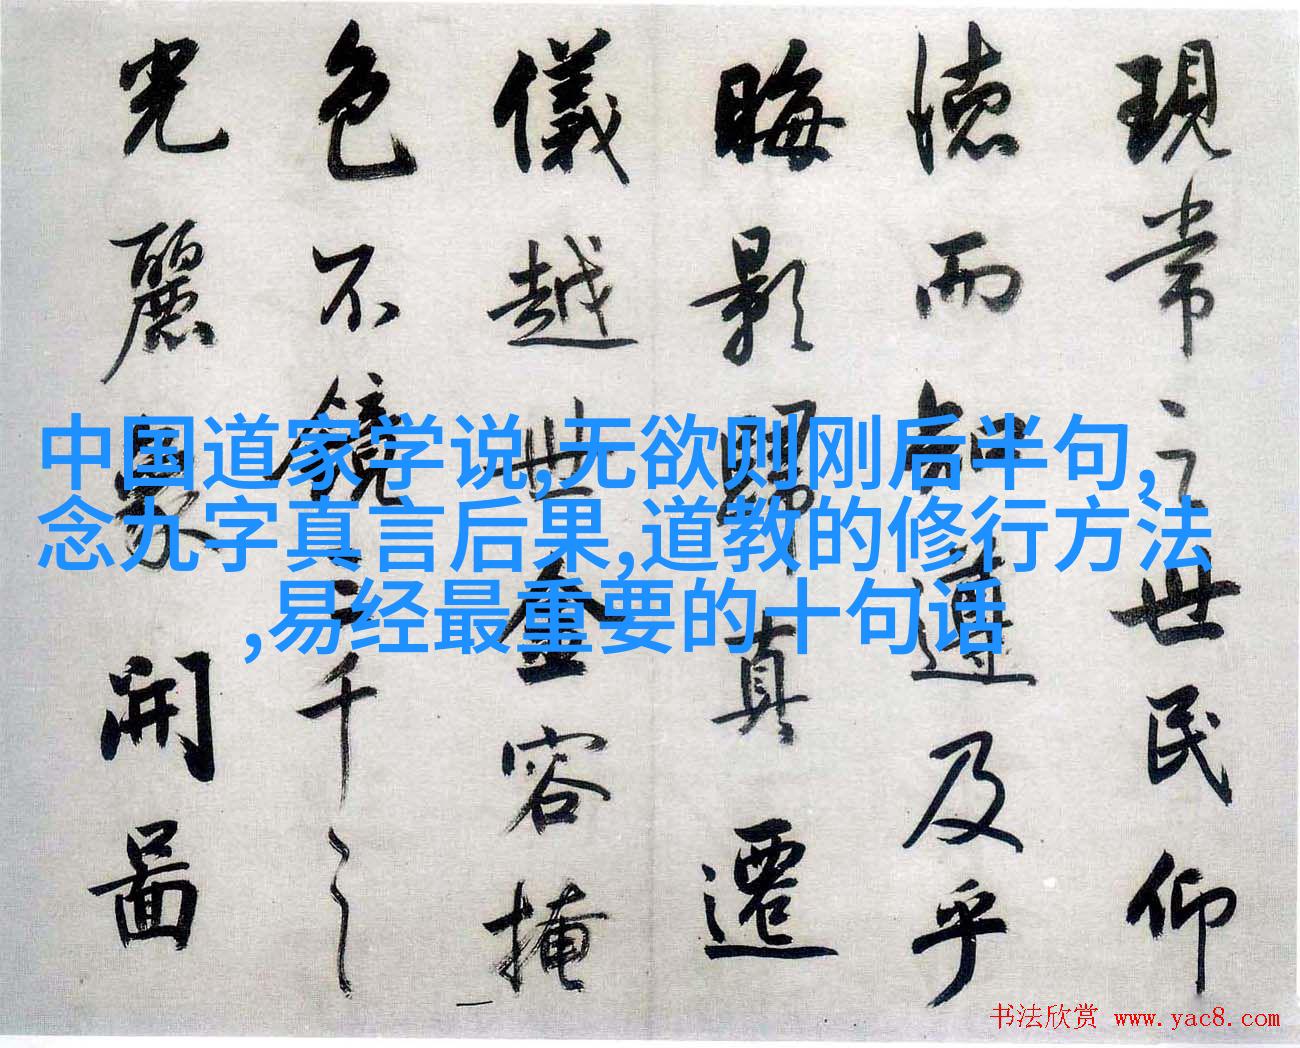 現常之世民仰
德而知遵及乎
晦影歸真遷
儀越世金容掩
色不鏡三千之
光麗象開圖
中国道家学说,无欲则刚后半句,
念九字真言后果,道教的修行方法
,易经最重要的十句话
书法欣赏 www.yac8.com